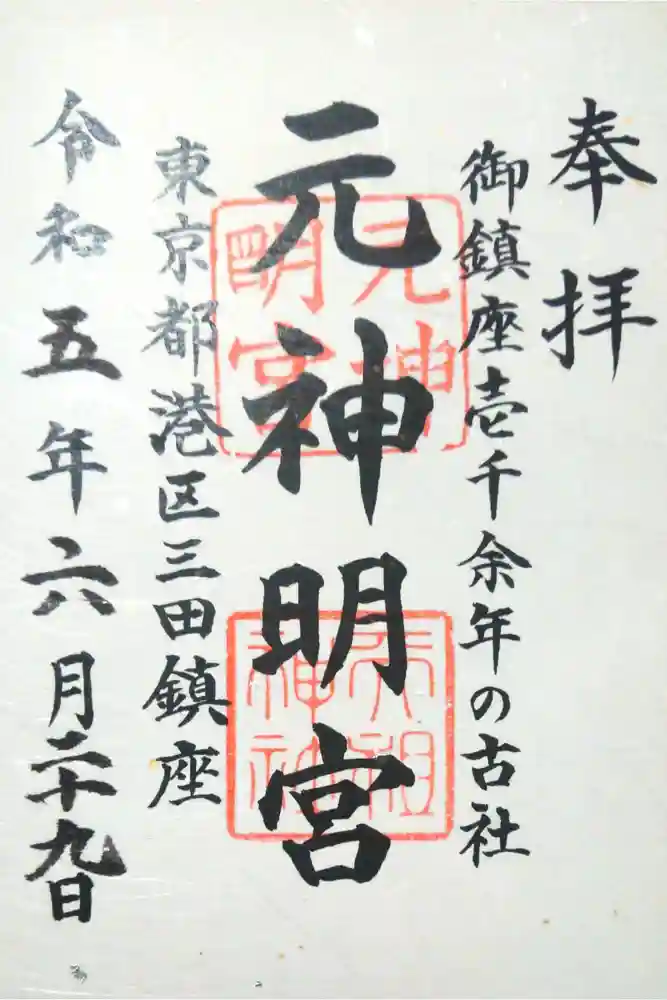 奉拝
御鎮座壱千余年の古社
元神明宮
元神明宮
天祖神社
東京都港区三田鎮座
令和五年六月二十九日